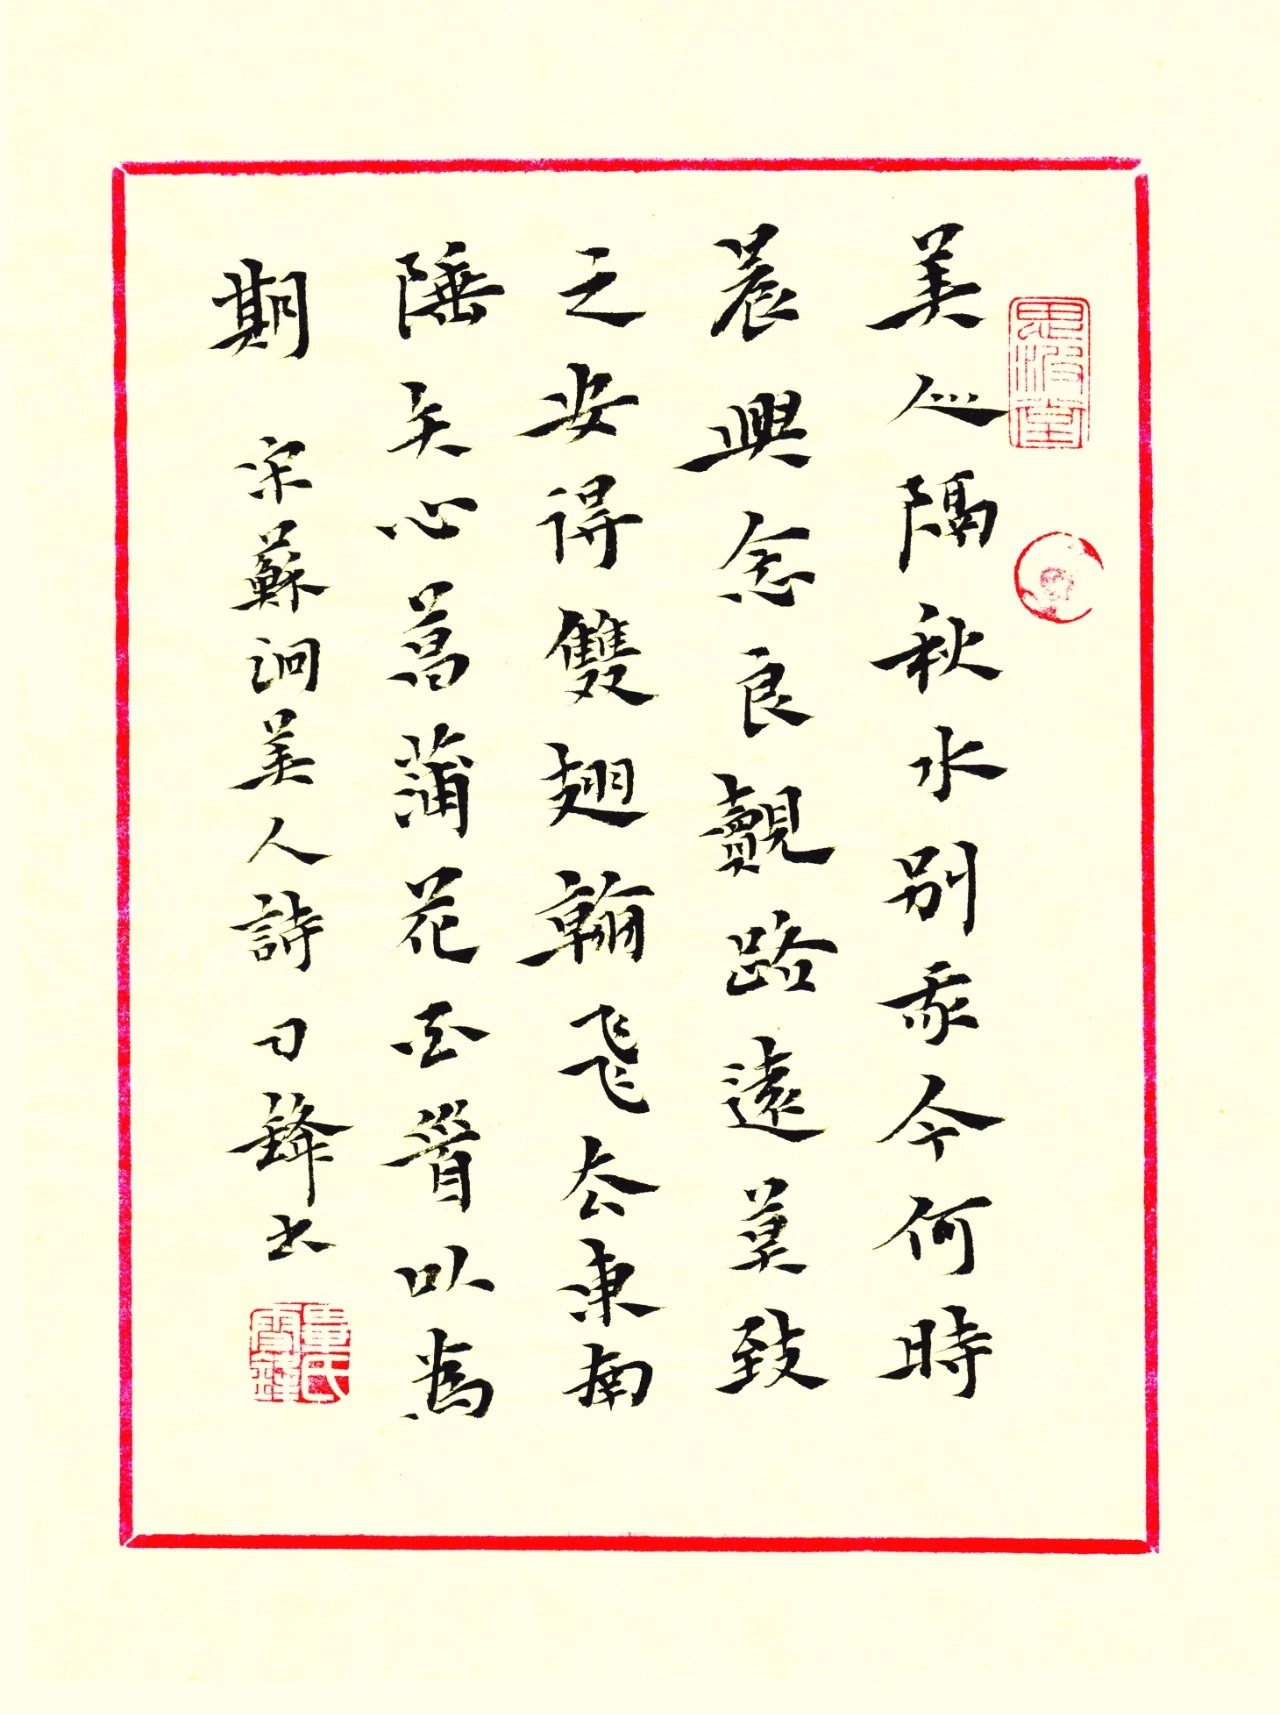 美人隔秋水別來今何時
晨興念良覿路遠莫致
之安得雙翅翰飛去東南
陲矢心菖蒲花白首以為
期 宋蘇泂美人詩 刁鋒書